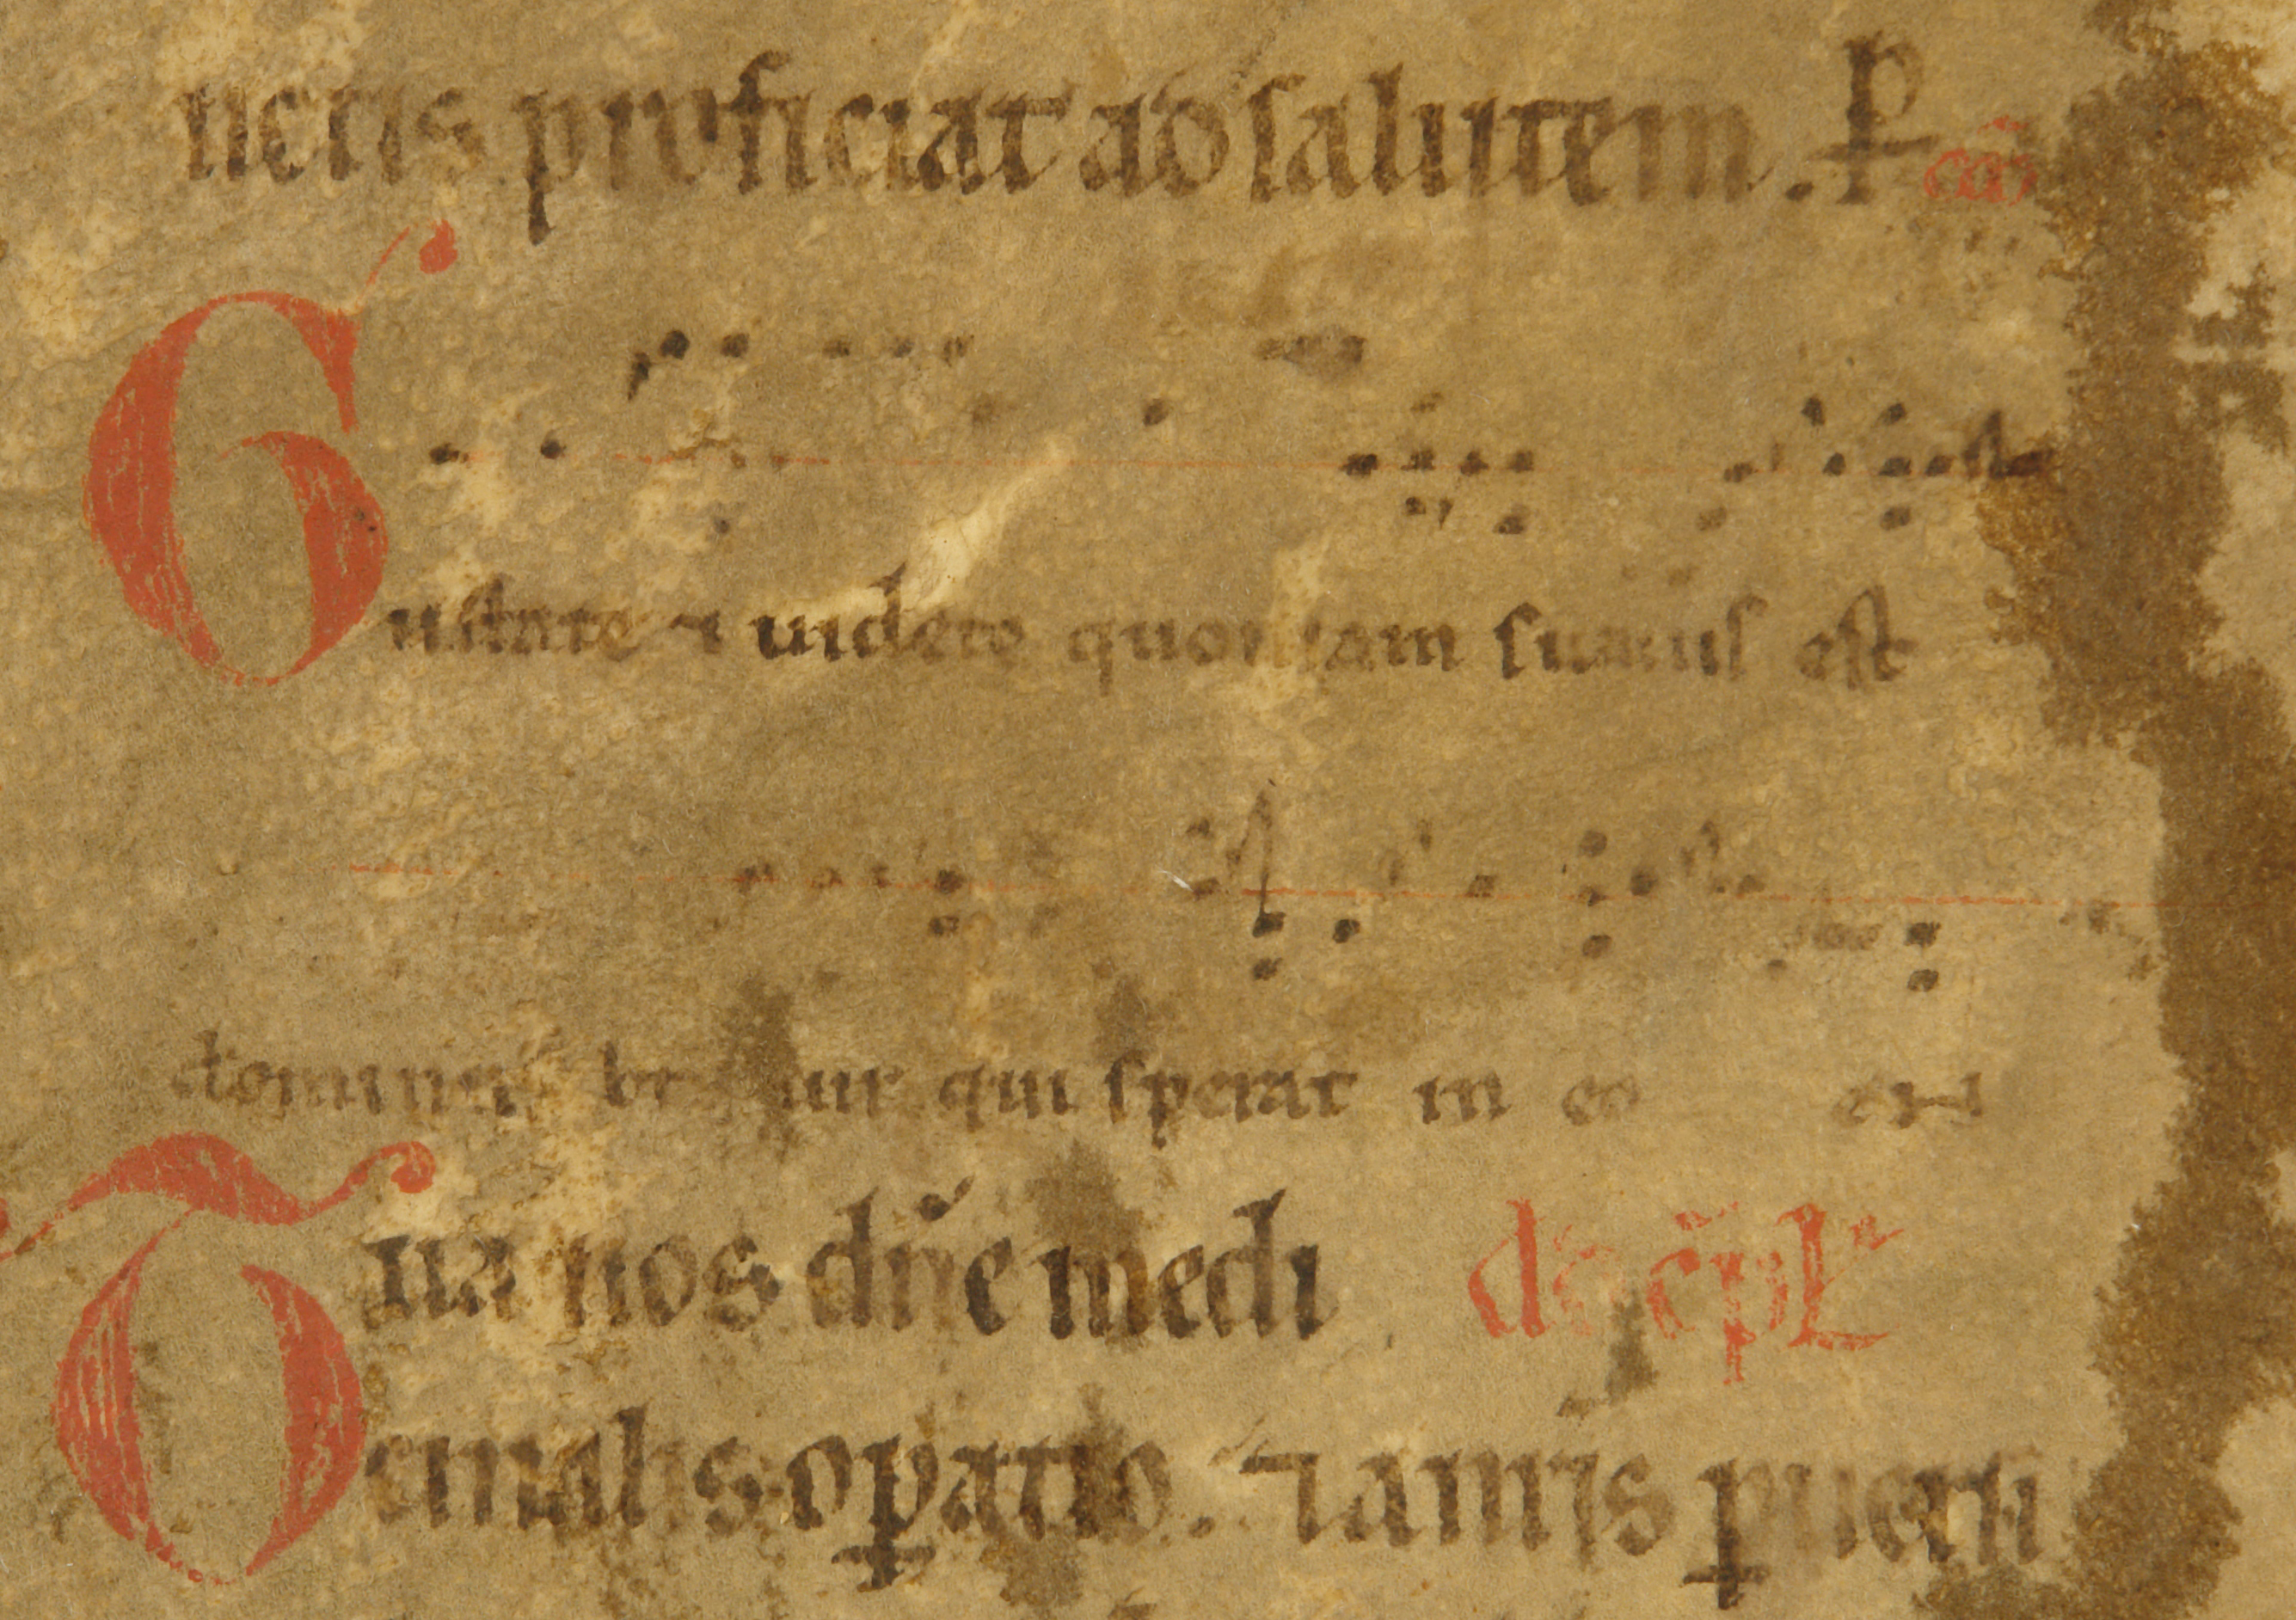 nctis proficiat ad salutem. ꝑ cō
Gustate ⁊ uidete quoniam suauis est
dominus be uir qui sperat in eo e
Tua nos dn̄e medi do cp̄l
cinalis oꝑatio. ⁊ a nr̄is ꝑuersi